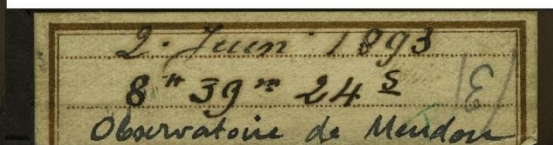 2. Juin 1893
8ʰ 39ᵐ 24ˢ
Observatoire de Meudon